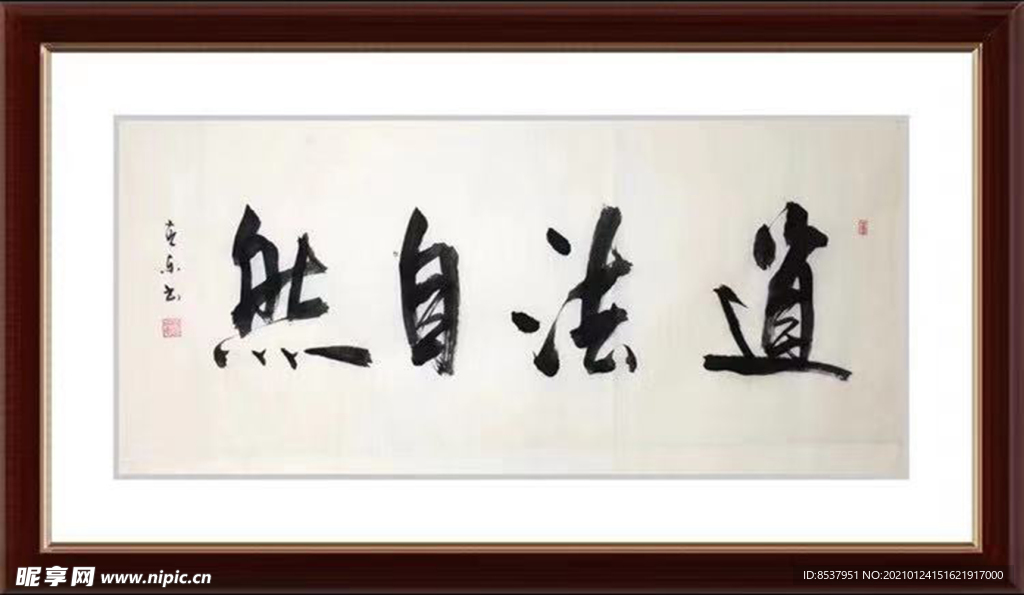 道法自然
昵享网 www.nipic.cn
ID:8537951 NO:20210124151621917000